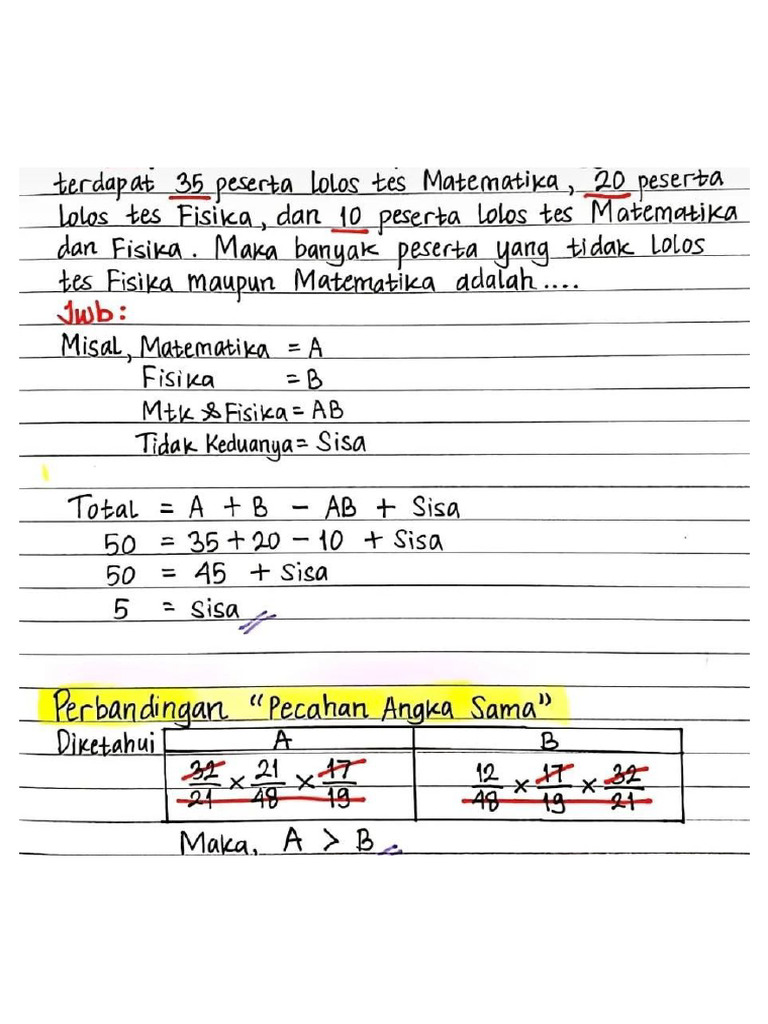 terdapat 35 peserta lolos tes Matematika, 20 peserta
lolos tes Fisika, dan 10 peserta lolos tes Matematika
dan Fisika. Maka banyak peserta yang tidak lolos
tes Fisika maupun Matematika adalah....
Jwb:
Misal, Matematika = A
Fisika = B
Mtk & Fisika = AB
Tidak Keduanya = Sisa
Total = A + B - AB + Sisa
50 = 35 + 20 - 10 + Sisa
50 = 45 + Sisa
5 = Sisa
Perbandingan "Pecahan Angka Sama"
Diketahui A B
32/21 × 21/48 × 17/19 12/48 × 17/19 × 32/21
Maka, A > B